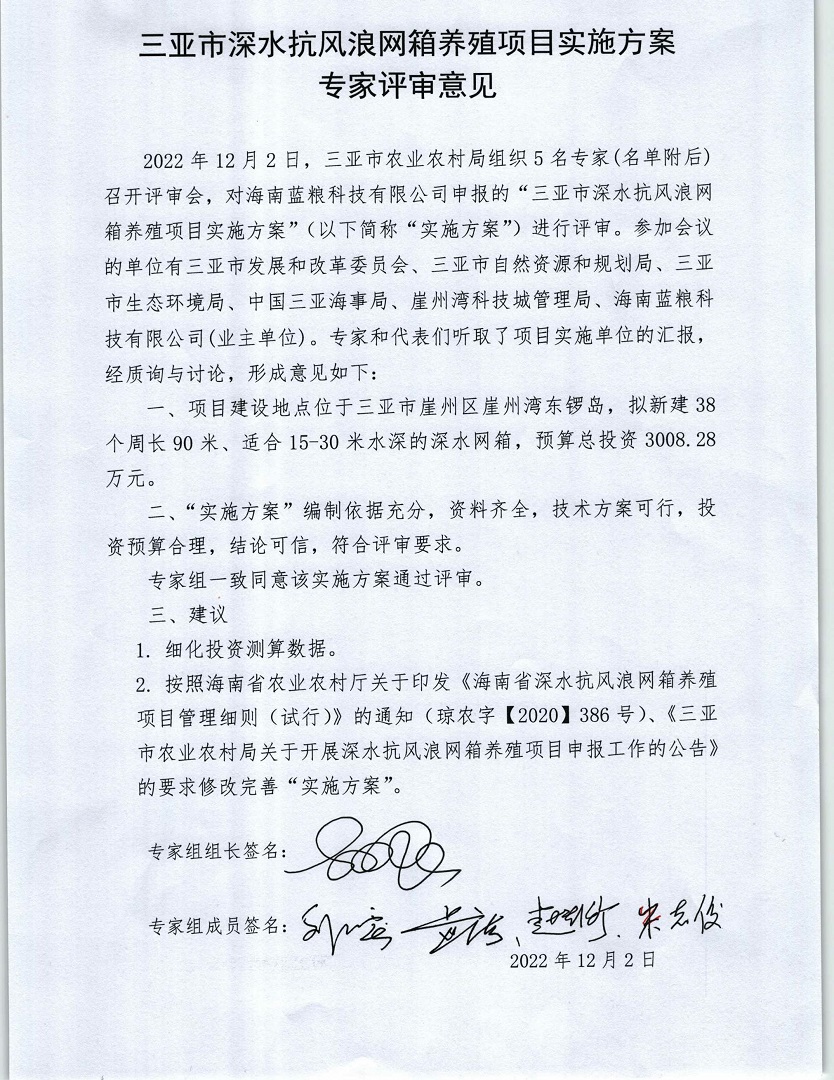 三亚市深水抗风浪网箱养殖项目实施方案
专家评审意见
2022年12月2日，三亚市农业农村局组织5名专家(名单附后)
召开评审会，对海南蓝粮科技有限公司申报的“三亚市深水抗风浪网
箱养殖项目实施方案”（以下简称“实施方案”）进行评审。参加会议
的单位有三亚市发展和改革委员会、三亚市自然资源和规划局、三亚
市生态环境局、中国三亚海事局、崖州湾科技城管理局、海南蓝粮科
技有限公司(业主单位)。专家和代表们听取了项目实施单位的汇报，
经质询与讨论，形成意见如下：
一、项目建设地点位于三亚市崖州区崖州湾东锣岛，拟新建38
个周长90米、适合15-30米水深的深水网箱，预算总投资3008.28
万元。
二、“实施方案”编制依据充分，资料齐全，技术方案可行，投
资预算合理，结论可信，符合评审要求。
专家组一致同意该实施方案通过评审。
三、建议
1. 细化投资测算数据。
2. 按照海南省农业农村厅关于印发《海南省深水抗风浪网箱养殖
项目管理细则（试行）》的通知（琼农字【2020】386号）、《三亚
市农业农村局关于开展深水抗风浪网箱养殖项目申报工作的公告》
的要求修改完善“实施方案”。
专家组组长签名：
专家组成员签名：
2022年12月2日